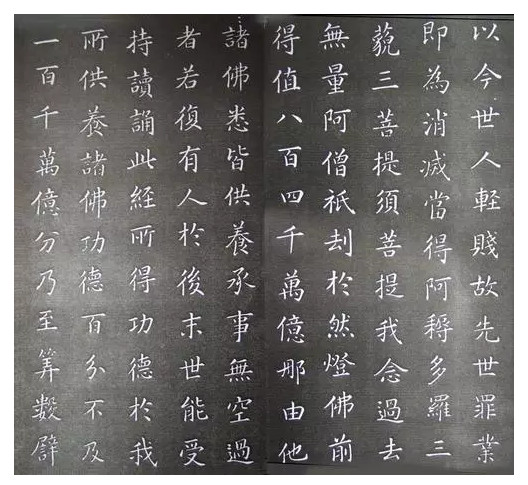 以今世人軽賤故先世罪業
即為消滅當得阿耨多羅三
藐三菩提須菩提我念過去
無量阿僧祇刦於然燈佛前
得值八百四千萬億那由他
諸佛悉皆供養承事無空過
者若復有人於後末世能受
持讀誦此経所得功德於我
所供養諸佛功德百分不及
一百千萬億分乃至筭數譬